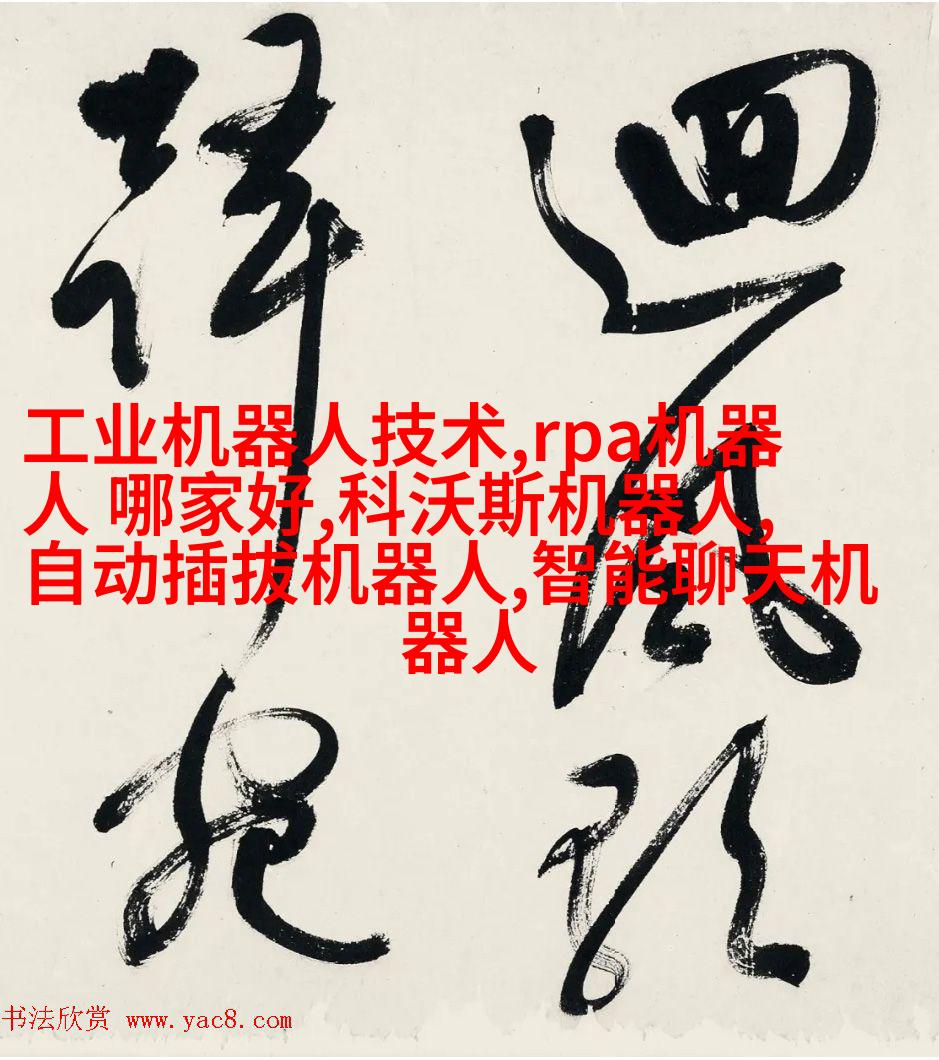 迴風
工业机器人技术,rpa机器
人 哪家好,科沃斯机器人,
自动插拔机器人,智能聊天机
器人
书法欣赏 www.yac8.com